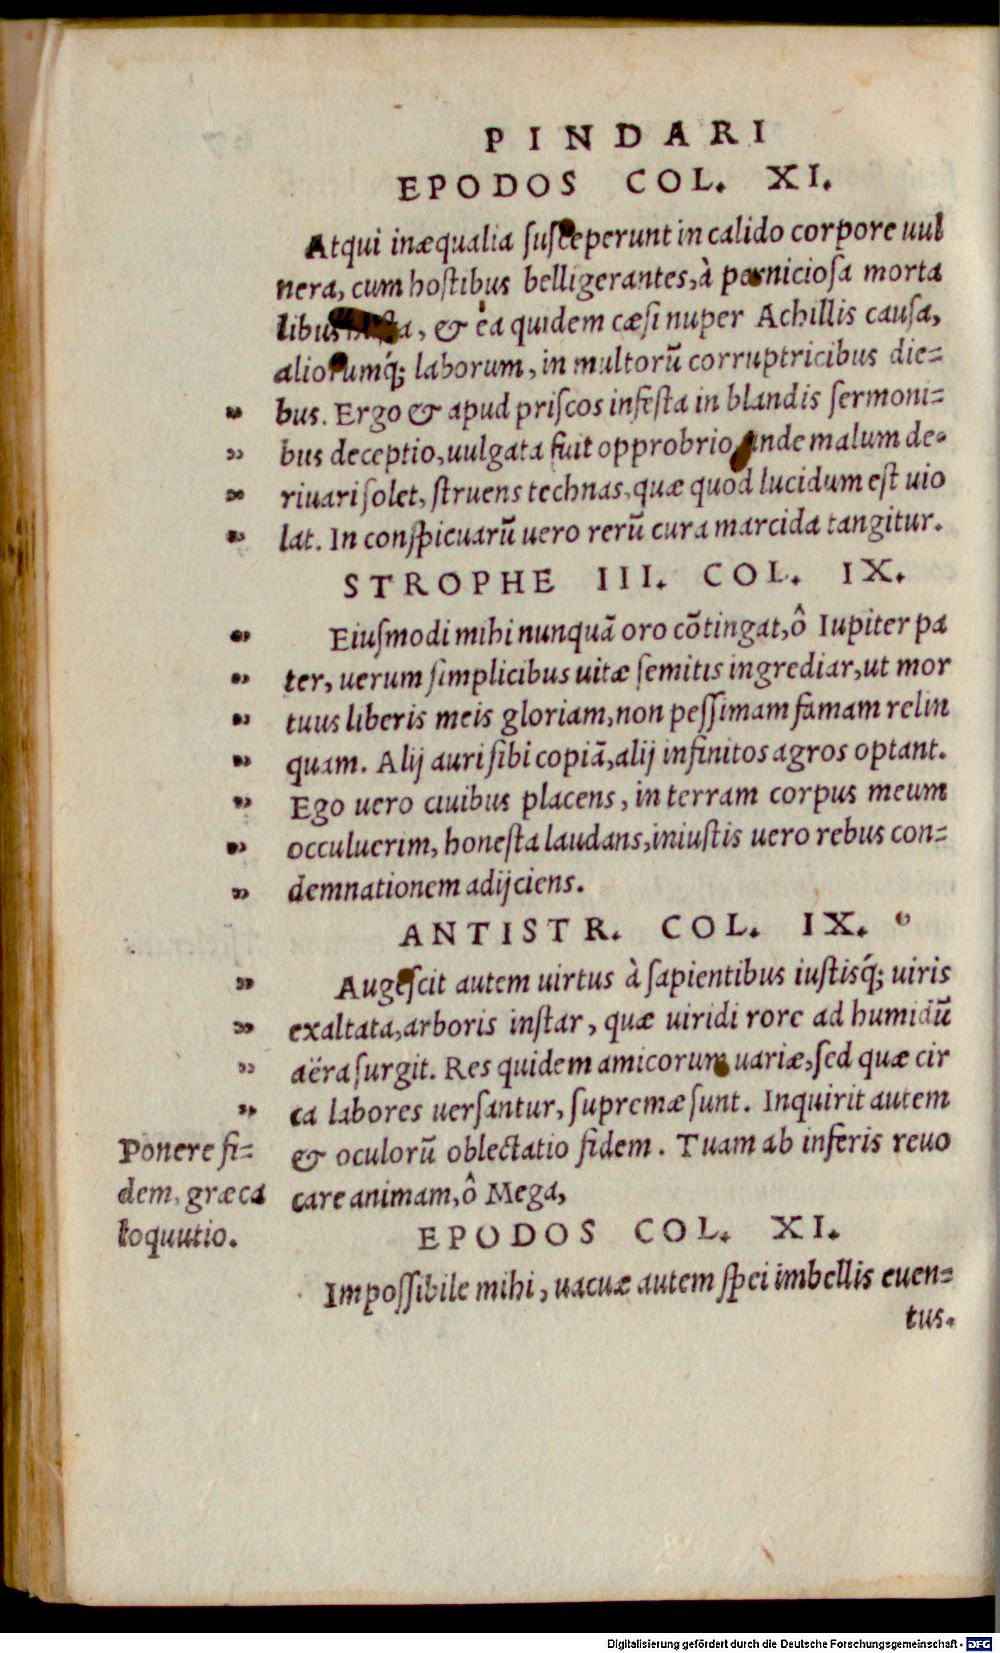 PINDARI
EPODOS COL. XI.
Atqui inæqualia susceperunt in calido corpore uul
nera, cum hostibus belligerantes, à perniciosa morta
libus, & ea quidem cæsi nuper Achillis causa,
aliorumq́; laborum, in multorũ corruptricibus die-
„ bus. Ergo & apud priscos infesta in blandis sermoni-
„ bus deceptio, uulgata fuit opprobrio, unde malum de-
„ riuari solet, struens technas, quæ quod lucidum est uio
„ lat. In conspicuarũ uero rerũ cura marcida tangitur.
STROPHE III. COL. IX.
„ Eiusmodi mihi nunquã oro cõtingat, ô Iupiter pa
„ ter, uerum simplicibus uitæ semitis ingrediar, ut mor
„ tuus liberis meis gloriam, non pessimam famam relin
„ quam. Alij auri sibi copiã, alij infinitos agros optant.
„ Ego uero ciuibus placens, in terram corpus meum
„ occuluerim, honesta laudans, iniustis uero rebus con-
„ demnationem adijciens.
ANTISTR. COL. IX.
„ Augescit autem uirtus à sapientibus iustisq́; uiris
„ exaltata, arboris instar, quæ uiridi rore ad humidũ
„ aëra surgit. Res quidem amicorum uariæ, sed quæ cir
„ ca labores uersantur, supremæ sunt. Inquirit autem
Ponere fi-
dem, græca
loquutio.
& oculorũ oblectatio fidem. Tuam ab inferis reuo
care animam, ô Mega,
EPODOS COL. XI.
Impossibile mihi, uacuæ autem spei imbellis euen-
tus.
Digitalisierung gefördert durch die Deutsche Forschungsgemeinschaft - DFG